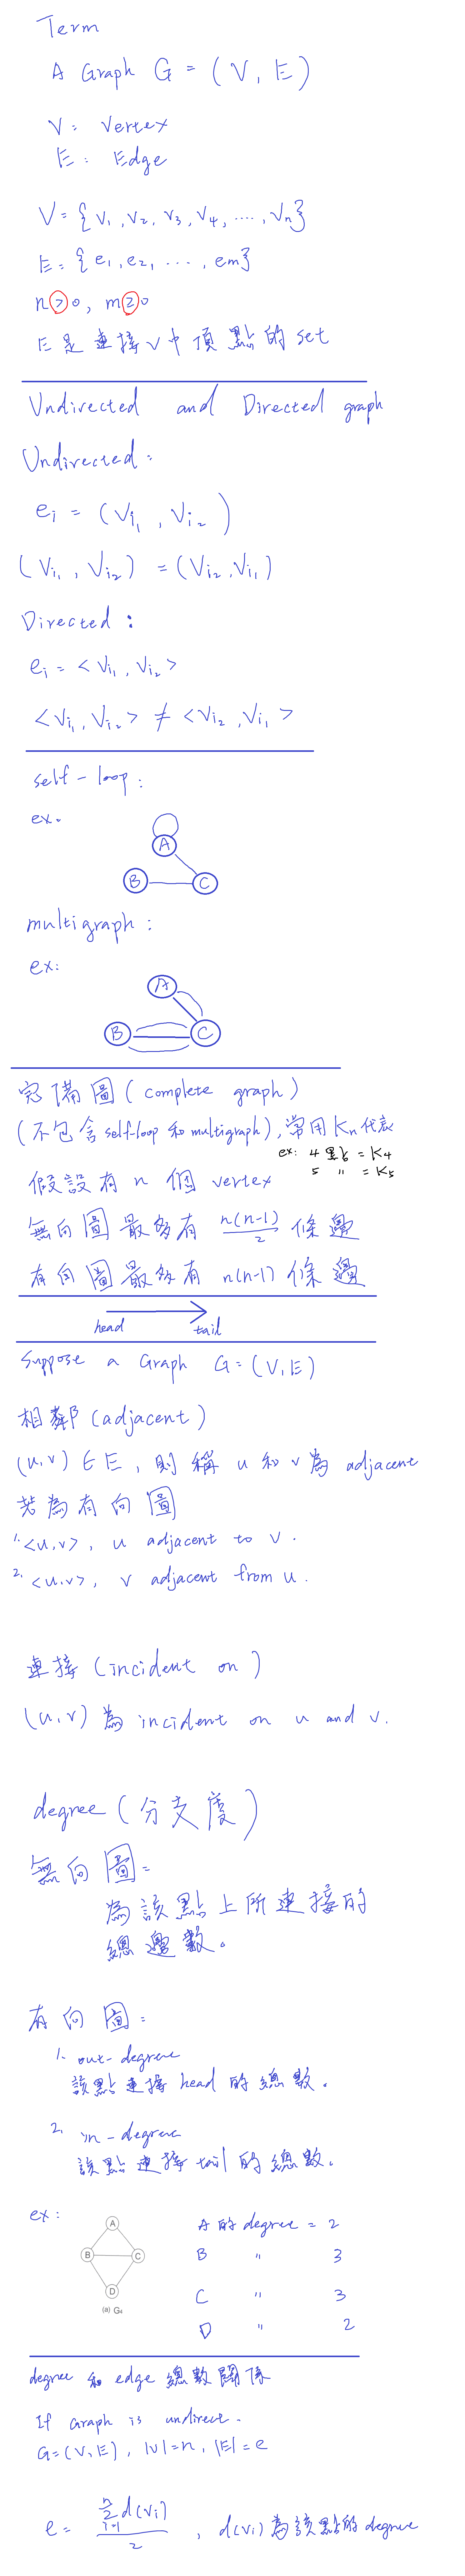 Term
A Graph G = (V, E)
V: Vertex
E: Edge
V = {v1, v2, v3, v4, ...., vn}
E = {e1, e2, ...., em}
n > 0, m ≥ 0
E是連接V中頂點的set
Undirected and Directed graph
Undirected:
ei = (Vi1, Vi2)
(Vi1, Vi2) = (Vi2, Vi1)
Directed:
ei = <Vi1, Vi2>
<Vi1, Vi2> ≠ <Vi2, Vi1>
self-loop:
ex.
A
B
C
multigraph:
ex:
A
B
C
完備圖(complete graph)
(不包含self-loop和multigraph),常用Kn代表
ex: 4點 = K4
5 〃 = K5
假設有n個vertex
無向圖最多有 n(n-1)/2 條邊
有向圖最多有 n(n-1) 條邊
head
tail
Suppose a Graph G=(V,E)
相鄰(adjacent)
(u,v)∈E, 則稱u和v為adjacent
若為有向圖
1. <u,v>, u adjacent to v.
2. <u,v>, v adjacent from u.
連接(incident on)
(u,v)為incident on u and v.
degree(分支度)
無向圖:
為該點上所連接的
總邊數。
有向圖:
1. out-degree
該點連接head的總數。
2. in-degree
該點連接tail的總數。
ex:
A
B
C
D
(a) G4
A的degree = 2
B 〃 3
C 〃 3
D 〃 2
degree和edge總數關係
If Graph is undirect.
G=(V,E), |V|=n, |E|=e
e = Σ(i=1..n) d(vi) / 2, d(vi)為該點的degree